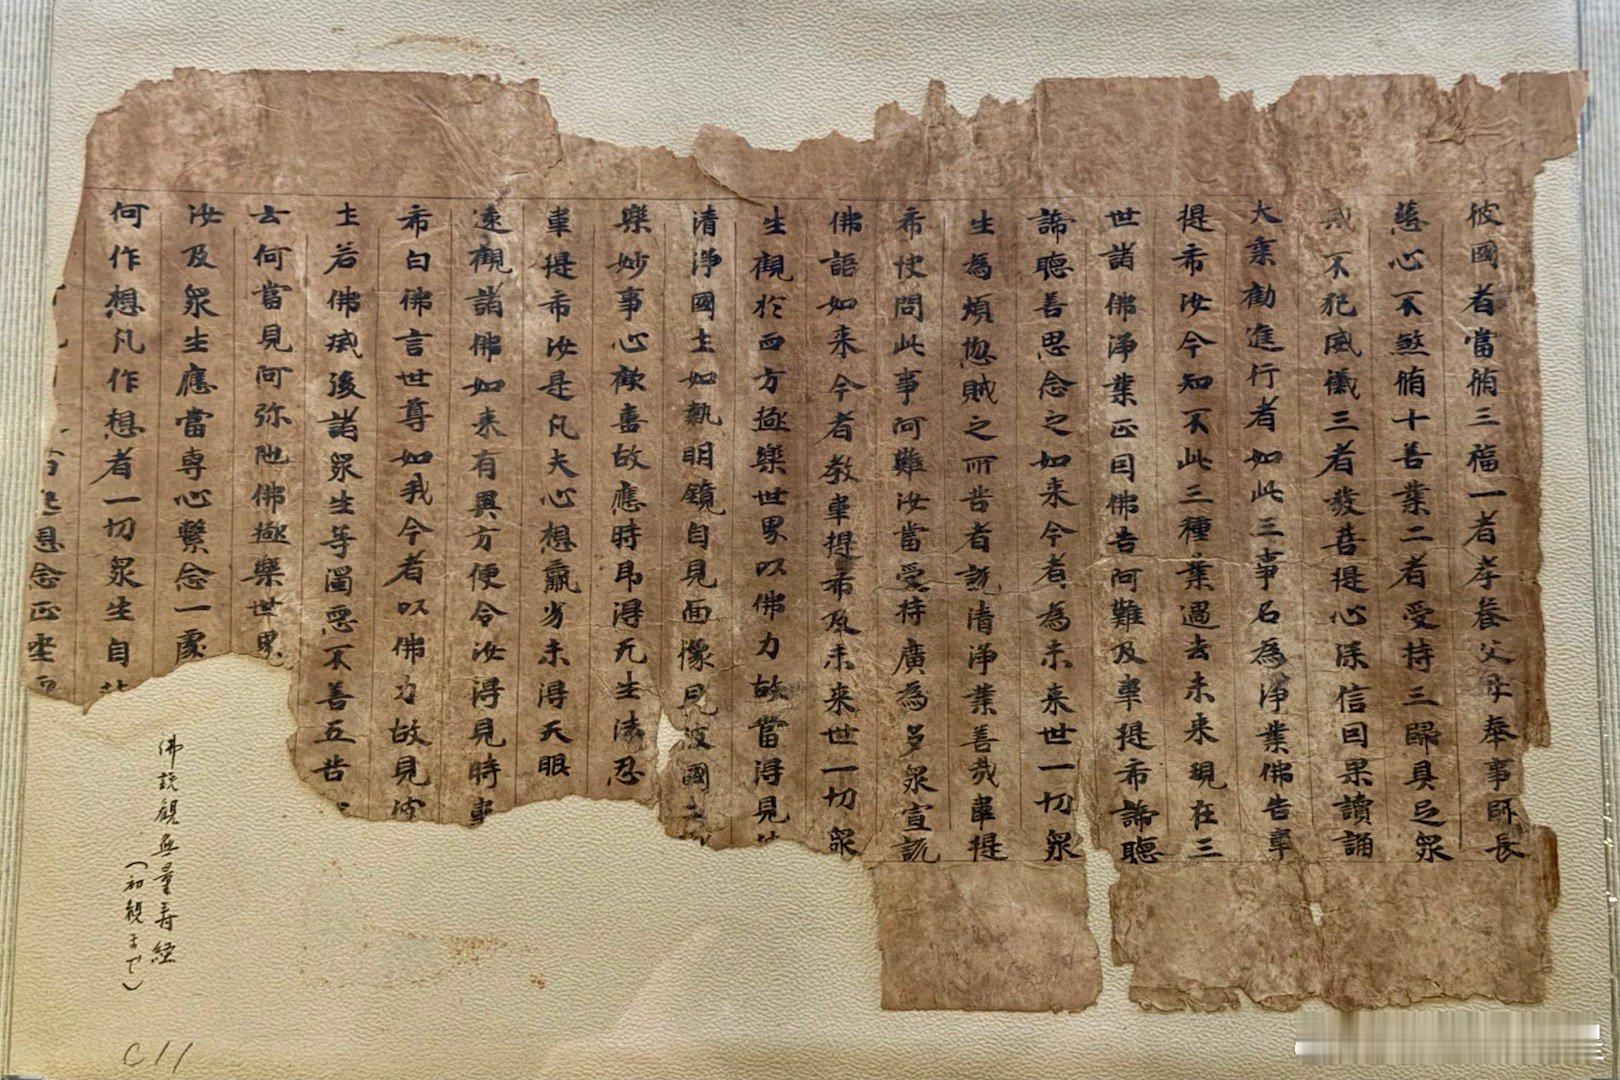 彼國者當脩三福一者孝養父母奉事師長
慈心不煞脩十善業二者受持三歸具足衆
戒不犯威儀三者發菩提心深信因果讀誦
大乘勸進行者如此三事名為淨業佛告韋
提希汝今知不此三種業過去未來現在三
世諸佛淨業正因佛告阿難及韋提希諦聽
諦聽善思念之如来今者為未来世一切衆
生為煩惱賊之所害者說清淨業善哉韋提
希快問此事阿難汝當受持廣為多衆宣說
佛語如来今者教韋提希及未来世一切衆
生觀於西方極樂世界以佛力故當得見
清淨國土如執明鏡自見面像見彼國土
樂妙事心歡喜故應時即得无生法忍
韋提希汝是凡夫心想羸劣未得天眼
遠觀諸佛如来有異方便令汝得見時韋
希白佛言世尊如我今者以佛力故見彼
土若佛滅後諸衆生等濁惡不善五苦
云何當見阿弥陁佛極樂世界
汝及衆生應當專心繫念一處
何作想凡作想者一切衆生自
想念正坐
佛説観無量寿経
(初観まで)
C11